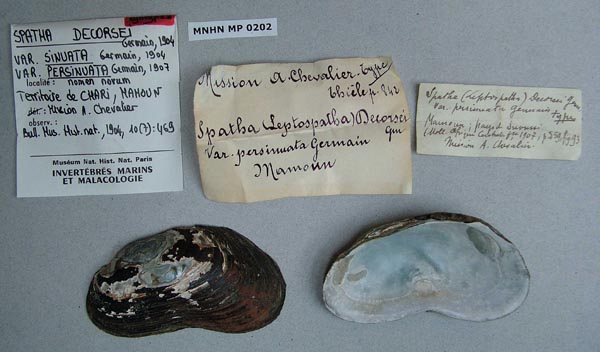 SPATHA DECORSEI
Germain, 1904
VAR. SINUATA Germain, 1904
VAR. PERSINUATA Germain, 1907
localité: nomen novum
Territoire de CHARI, MAMOUN
dét.: Mission A. Chevalier
observ.:
Bull. Mus. Hist. nat., 1904, 10(7): 469
Muséum Nat. Hist. Nat. Paris
INVERTÉBRÉS MARINS
ET MALACOLOGIE
MNHN MP 0202
Mission A. Chevalier. Type
p. 842
Spatha (Leptospatha) Decorsei
Gm
Var. persinuata Germain
Mamoun
Spatha (Leptospatha) Decorsei Gm
Var. persinuata Germain
Type
Mamoun
1907
Mission A. Chevalier